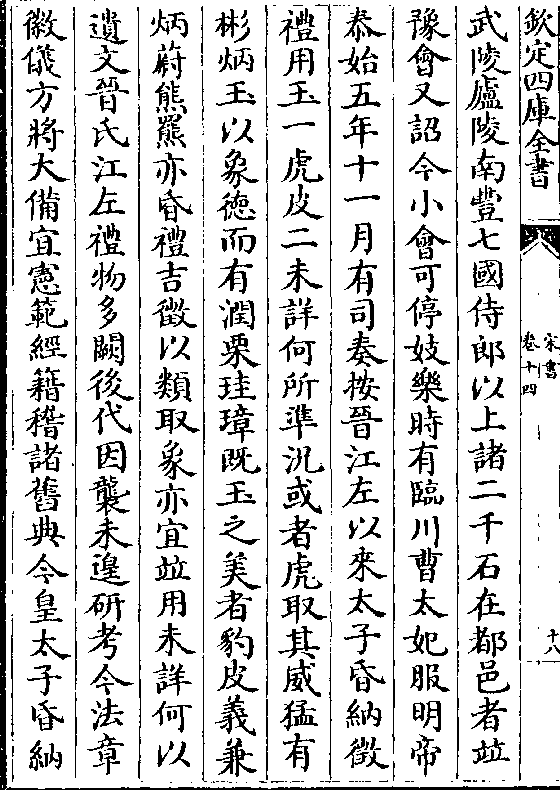 欽定四庫全書
宋書
卷十四
十八
武陵廬陵南豐七國侍郎以上諸二千石在都邑者竝
豫會又詔今小會可停妓樂時有臨川曹太妃服明帝
泰始五年十一月有司奏按晉江左以來太子昏納徵
禮用玉一虎皮二未詳何所準況或者虎取其威猛有
彬炳玉以象德而有潤栗珪璋既玉之美者豹皮義兼
炳蔚熊羆亦昏禮吉徵以類取象亦宜竝用未詳何以
遺文晉氏江左禮物多闕後代因襲未遑研考今法章
徽儀方將大備宜憲範經籍稽諸舊典今皇太子昏納